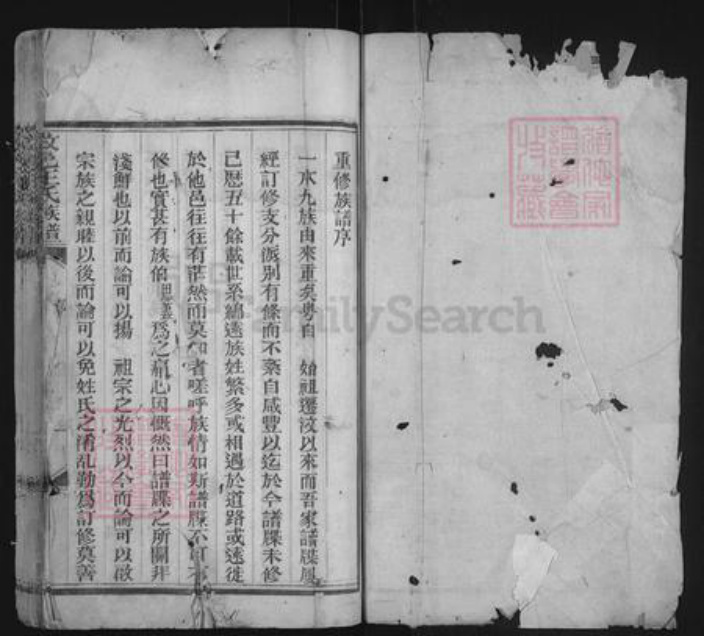 重修族譜序
一本九族由來重矣粤自　始祖遷汶以來而吾家譜牒屢
經訂修支分派別有條而不紊自咸豐以迄於今譜牒未修
已歷五十餘載世系綿遠族姓繁多或相遇於道路或遠徙
於他邑往往有茫然而莫知者嗟呼族情如斯譜牒不可不
修也實甚有族伯 為之痛心因慨然曰譜牒之所關非
淺鮮也以前而論可以揚　祖宗之光烈以今而論可以敦
宗族之親睦以後而論可以免姓氏之淆乱勒為訂修莫善
汶邑王氏族譜
FamilySearch